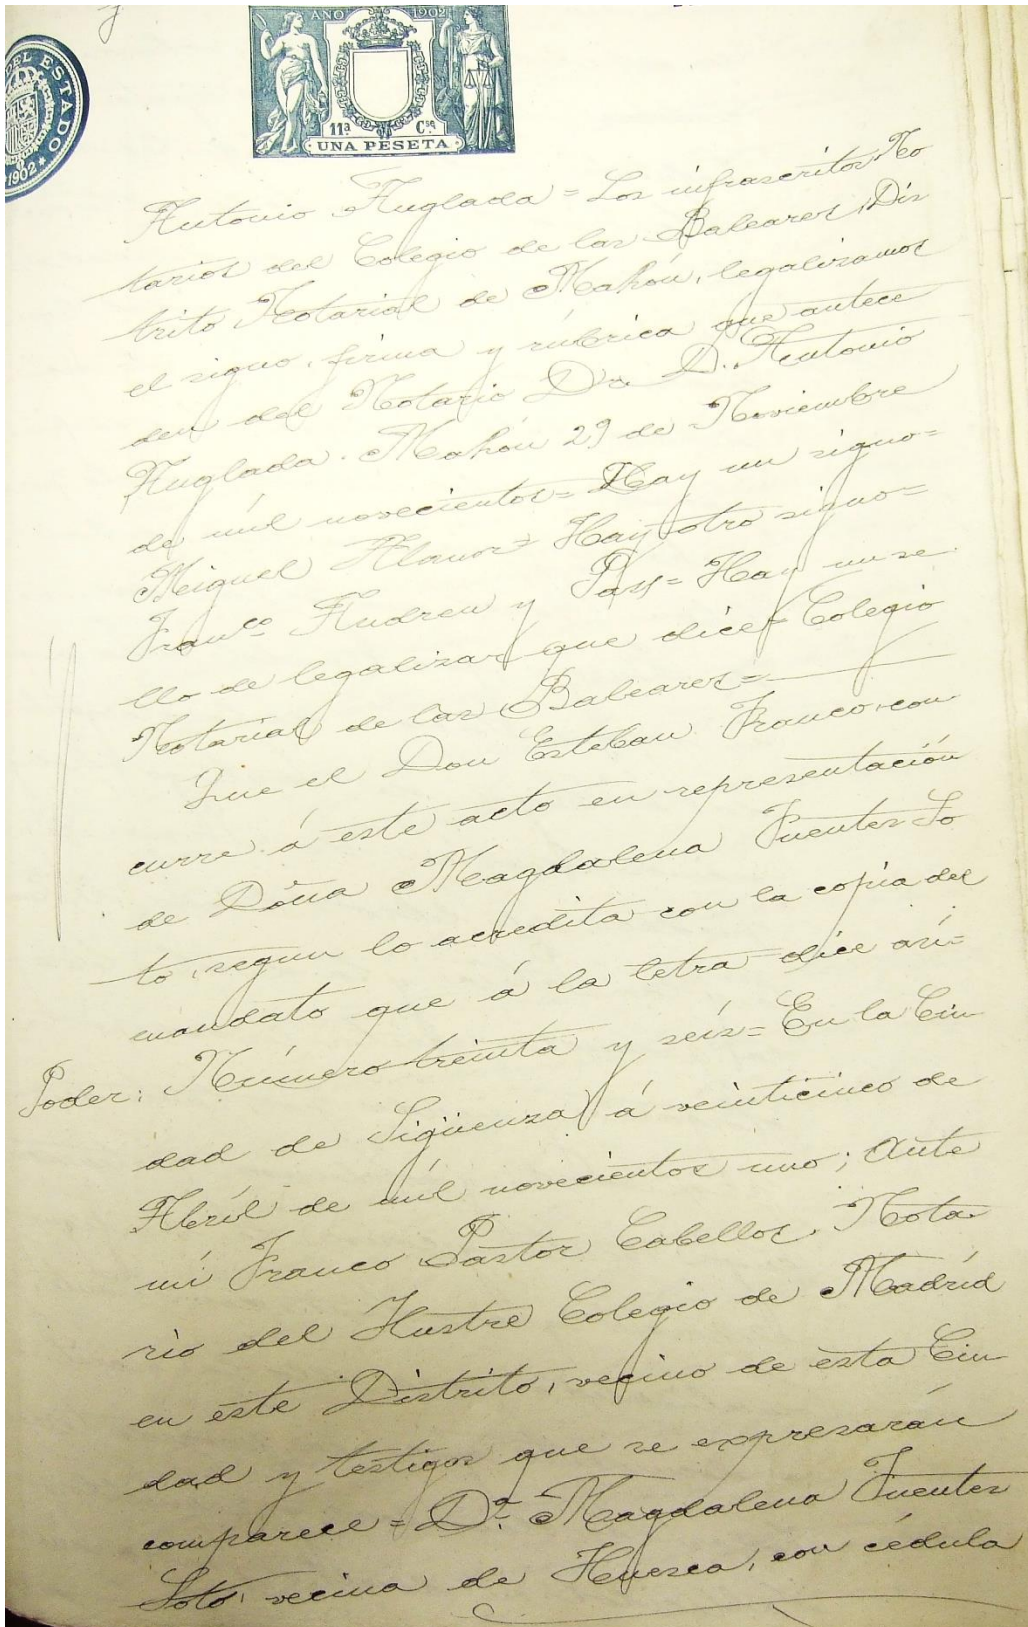 DEL ESTADO
1902
AÑO 1902
11ª Cse
UNA PESETA
Antonio Anglada = Los infrascritos No
tarios del Colegio de las Baleares, Dis
trito Notarial de Mahón, legalizamos
el signo, firma y rúbrica que antece
den del Notario D. Antonio
Anglada. Mahón 29 de Noviembre
de mil novecientos = Hay un signo =
Miguel = Hay otro signo =
Franco Andreu y Pax = Hay un se
llo de legalizar que dice = Colegio
Notarial de las Baleares =
Que el Don Esteban Franco, con
curre á este acto en representación
de Doña Magdalena Fuentes So
to, segun lo acredita con la copia del
mandato que á la letra dice así =
Poder: Número treinta y seis = En la Ciu
dad de Sigüenza á veinticinco de
Abril de mil novecientos uno; Ante
mi Franco Pastor Cabellos, Nota
rio del Ilustre Colegio de Madrid
en este Distrito, vecino de esta Ciu
dad y testigos que se expresarán
comparece = Dª. Magdalena Fuentes
Soto, vecina de Huesca, con cédula